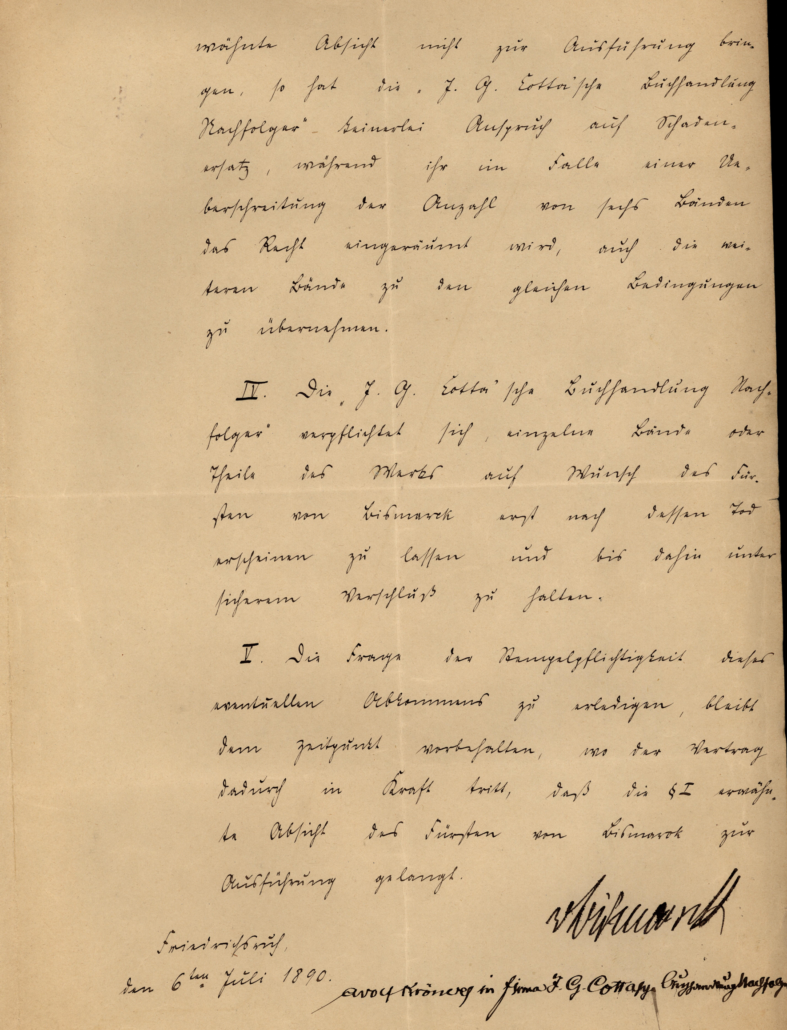 wähnte Absicht nicht zur Ausführung brin-
gen, so hat die „J. G. Cotta'sche Buchhandlung
Nachfolger" keinerlei Anspruch auf Schaden-
ersatz, während ihr im Falle einer Ue-
berschreitung der Anzahl von sechs Bänden
das Recht eingeräumt wird, auch die wei-
teren Bände zu den gleichen Bedingungen
zu übernehmen.
IV. Die „J. G. Cotta'sche Buchhandlung Nach-
folger" verpflichtet sich, einzelne Bände oder
Theile des Werks auf Wunsch des Für-
sten von Bismarck erst nach dessen Tod
erscheinen zu lassen und bis dahin unter
sicherem Verschluß zu halten.
V. Die Frage der Stempelpflichtigkeit dieses
eventuellen Abkommens zu erledigen, bleibt
dem Zeitpunkt vorbehalten, wo der Vertrag
dadurch in Kraft tritt, daß die § I erwähn-
te Absicht des Fürsten von Bismarck zur
Ausführung gelangt.
v Bismarck
Friedrichsruh,
den 6ten Juli 1890.
Adolf Kröner in Firma J. G. Cotta'sche Buchhandlung Nachfolger